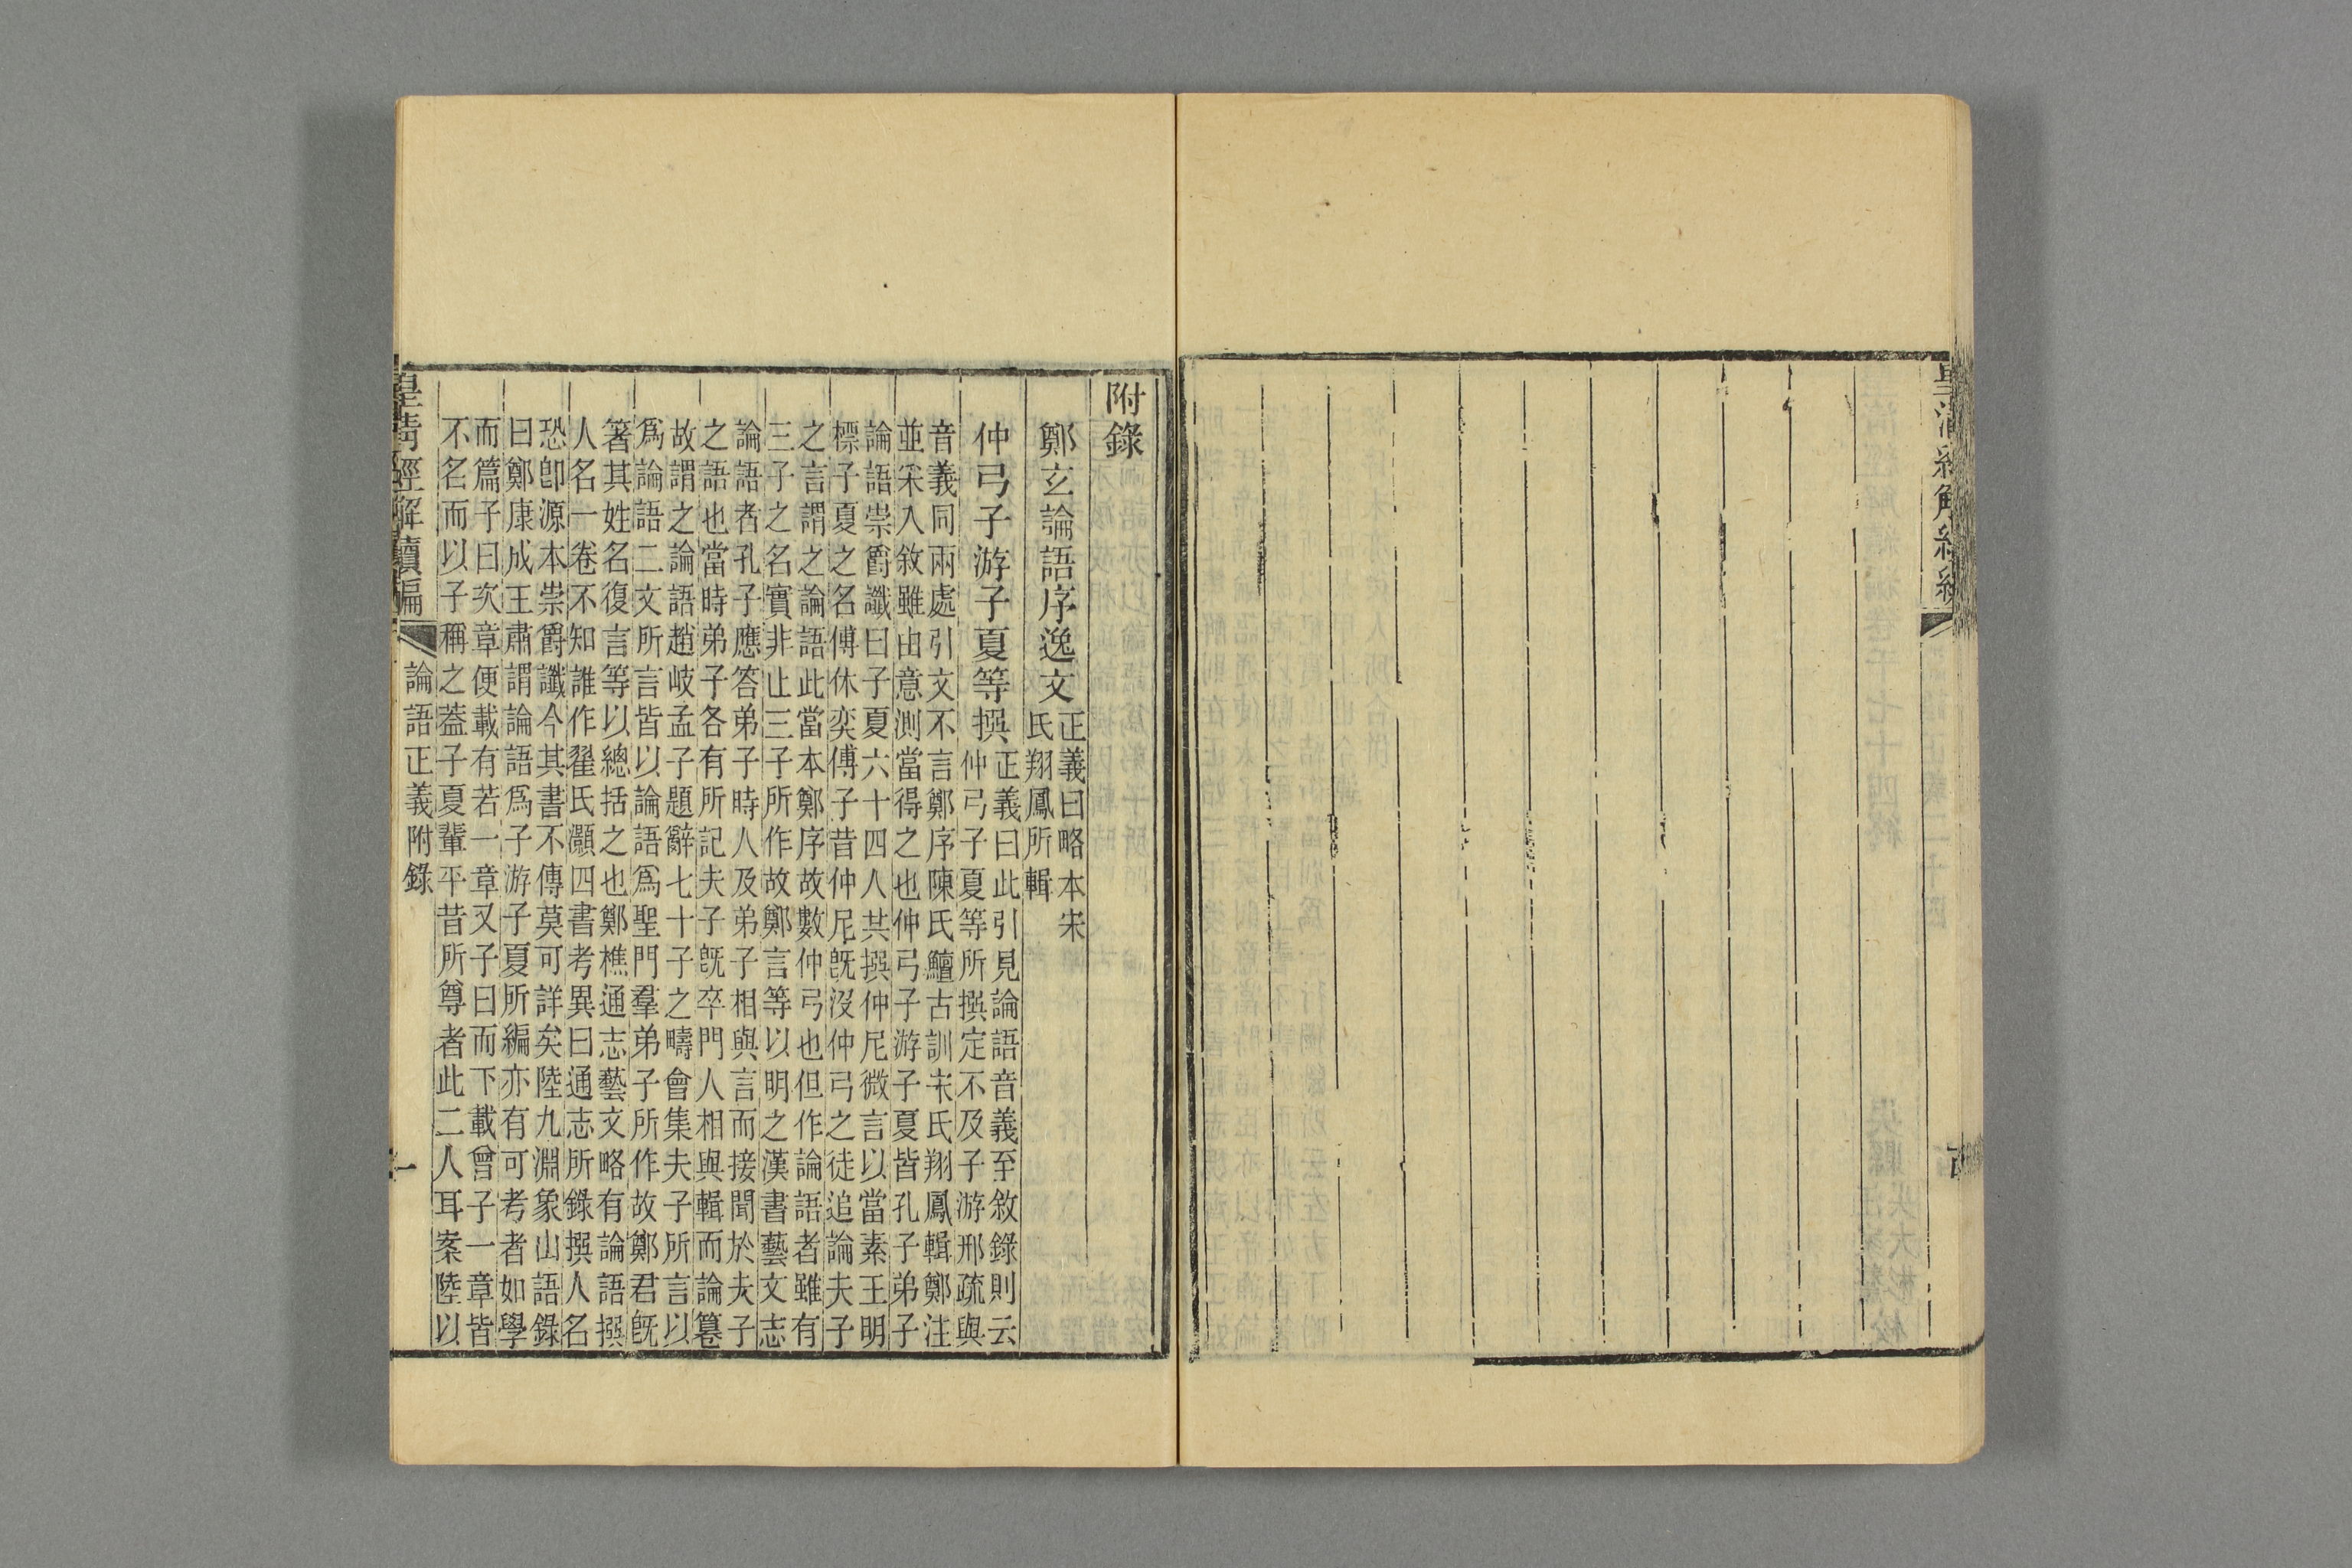 皇清經解續編
附錄
鄭玄論語序逸文
正義曰略本宋
氏翔鳳所輯
仲弓子游子夏等撰
正義曰此引見論語音義至敘錄則云
仲弓子夏等所撰定不及子游邢疏與
音義同兩處引文不言鄭序陳氏鱣古訓宋氏翔鳳輯鄭注
並采入敘雖由意測當得之也仲弓子游子夏皆孔子弟子
論語崇爵讖曰子夏六十四人共撰仲尼微言以當素王明
標子夏之名傅休奕傅子昔仲尼旣沒仲弓之徒追論夫子
之言謂之論語此當本鄭序故數仲弓也但作論語者雖有
三子之名實非止三子所作故鄭言等以明之漢書藝文志
論語者孔子應答弟子時人及弟子相與言而接聞於夫子
之語也當時弟子各有所記夫子旣卒門人相與輯而論篹
故謂之論語趙岐孟子題辭七十子之疇會集夫子所言以
爲論語二文所言皆以論語爲聖門羣弟子所作故鄭君旣
箸其姓名復言等以總括之也鄭樵通志藝文略有論語撰
人名一卷不知誰作翟氏灝四書考異曰通志所錄撰人名
恐卽源本崇爵讖今其書不傳莫可詳矣陸九淵象山語錄
曰鄭康成王肅謂論語爲子游子夏所編亦有可考者如學
而篇子曰次章便載有若一章又子曰而下載曾子一章皆
不名而以子稱之葢子夏輩平昔所尊者此二人耳案陸以
皇清經解續編
論語正義附錄
一